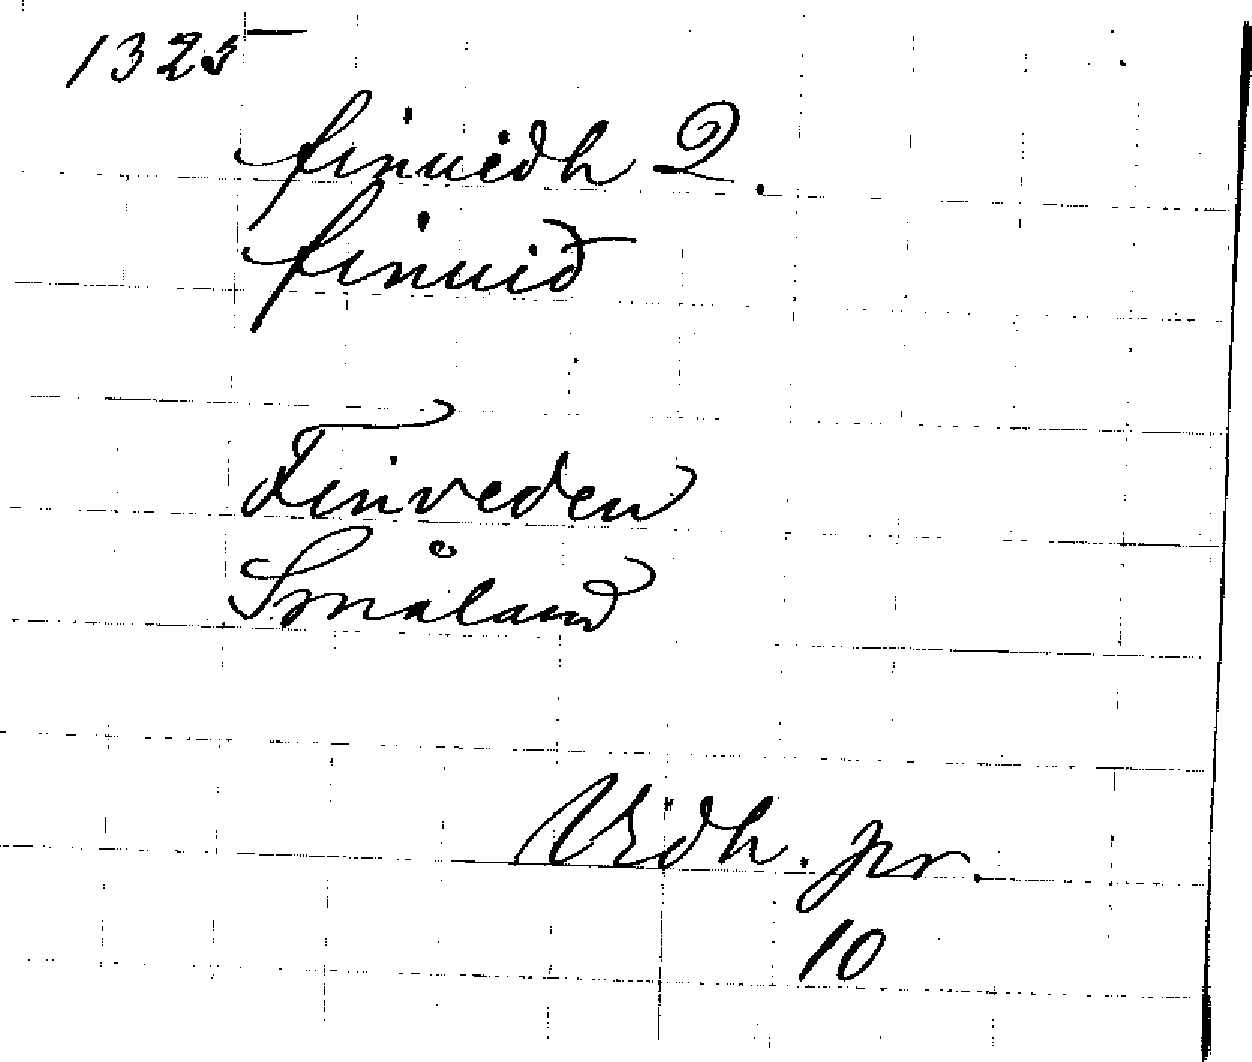 1325
finuidh 2.
finuid
Finveden
Småland
Vidh. pr.
10